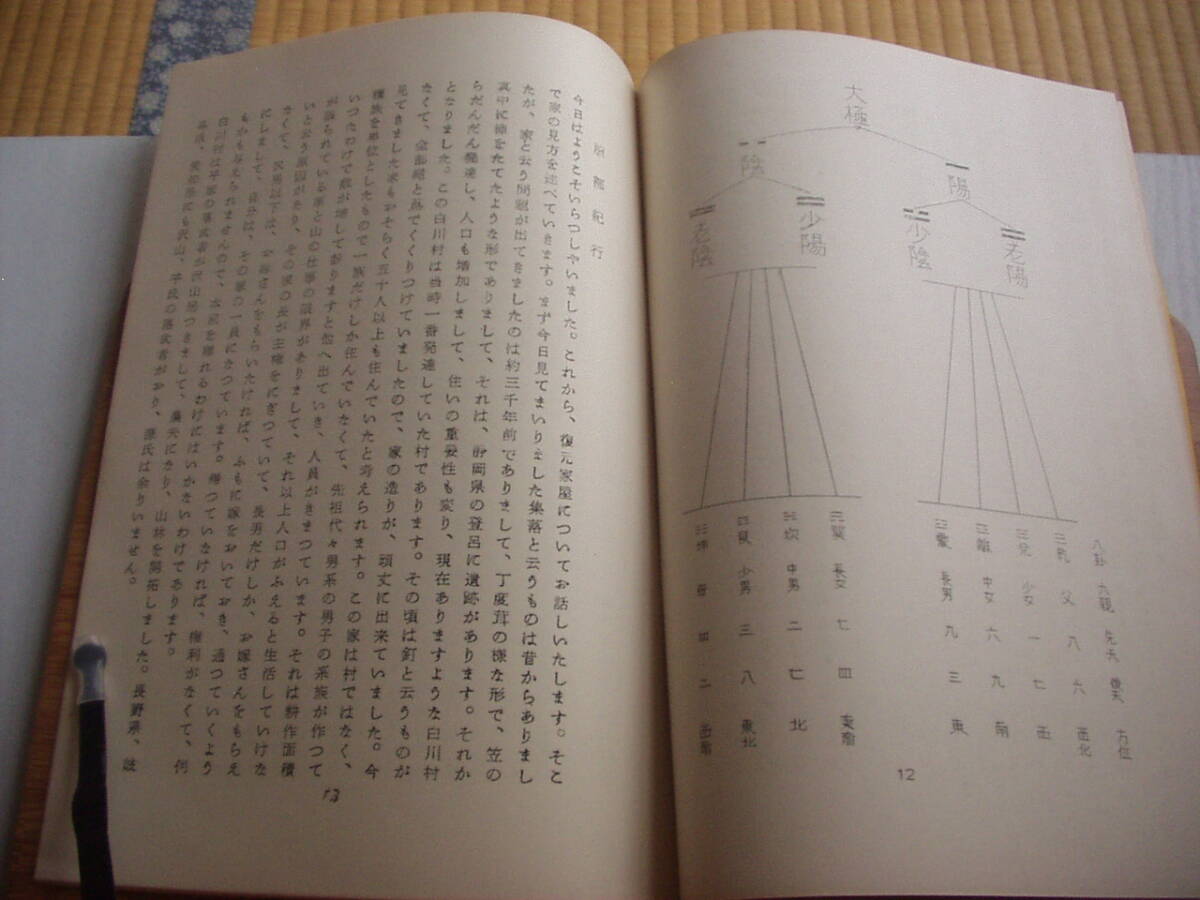 大極
陰
陽
老陰
少陽
少陰
老陽
八卦
六親
先天
後天
方位
乾 父 八 六 西北
兌 少女 一 七 西
離 中女 六 九 南
震 長男 九 三 東
巽 長女 七 四 東南
坎 中男 二 七 北
艮 少男 三 八 東北
坤 母 四 二 西南
12
紀行
今日はようこそいらつしやいました。これから、復元家屋についてお話しいたします。そこ
で家の見方を述べていきます。まず今日見てまいりました集落と云うものは昔からありまし
たが、家と云う問題が出てきましたのは約三千年前でありまして、丁度茸の様な形で、笠の
真中に棒をたてたような形でありまして、それは、静岡県の登呂に遺跡があります。それか
らだんだん発達し、人口も増加しまして、住いの重要性も変り、現在ありますような白川村
となりました。この白川村は当時一番発達していた村であります。その頃は釘と云うものが
なくて、全部縄と蔦でくくりつけていましたので、家の造りが、頑丈に出来ていました。今
見てきました家もおそらく五十人以上も住んでいたと考えられます。この家は村ではなく、
種族を単位としたもので一族だけしか住んでいなくて、先祖代々男系の男子の系族が作つて
いつたわけで数が増して おりますと他へ出ていき、人員がきまつています。それは耕作面積
が限られている事と山の仕事の限界がありまして、それ以上人口がふえると生活していけな
いと云う原因があり、その家の長が主権をにぎつていて、長男だけしか、お嫁さんをもらえ
なくて、次男以下は、お嫁さんをもらいたければ、ふもとに嫁をおいておき、通つていくよう
にしまして、自分は、その家の一員になつています。帰つていなければ、権利がなくて、何
もかも与えられませんので、本家を離れるわけにはいかないわけであります。
白川村は平家の落武者が沢山居つきまして、農夫になり、山林を開拓しました。長野県、岐
阜県、愛知県にも沢山、平氏の落武者がおり、源氏は余りいません。
13